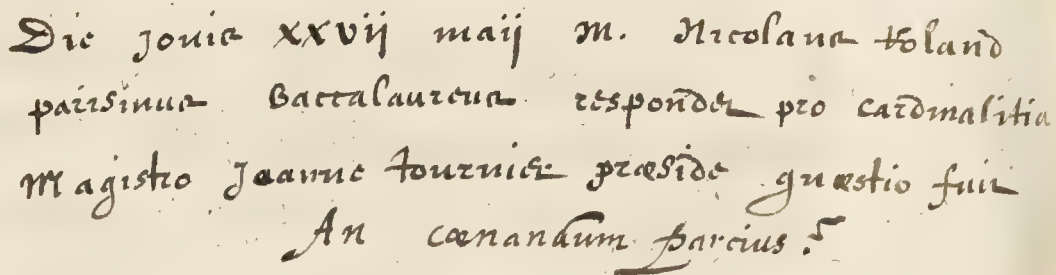 Die Jovis XXVij maij M. Nicolaus Roland
parisinus Baccalaureus respondet pro cardinalitia
Magistro Joanne tournier præside quæstio fuit
An cœnandum parcius?